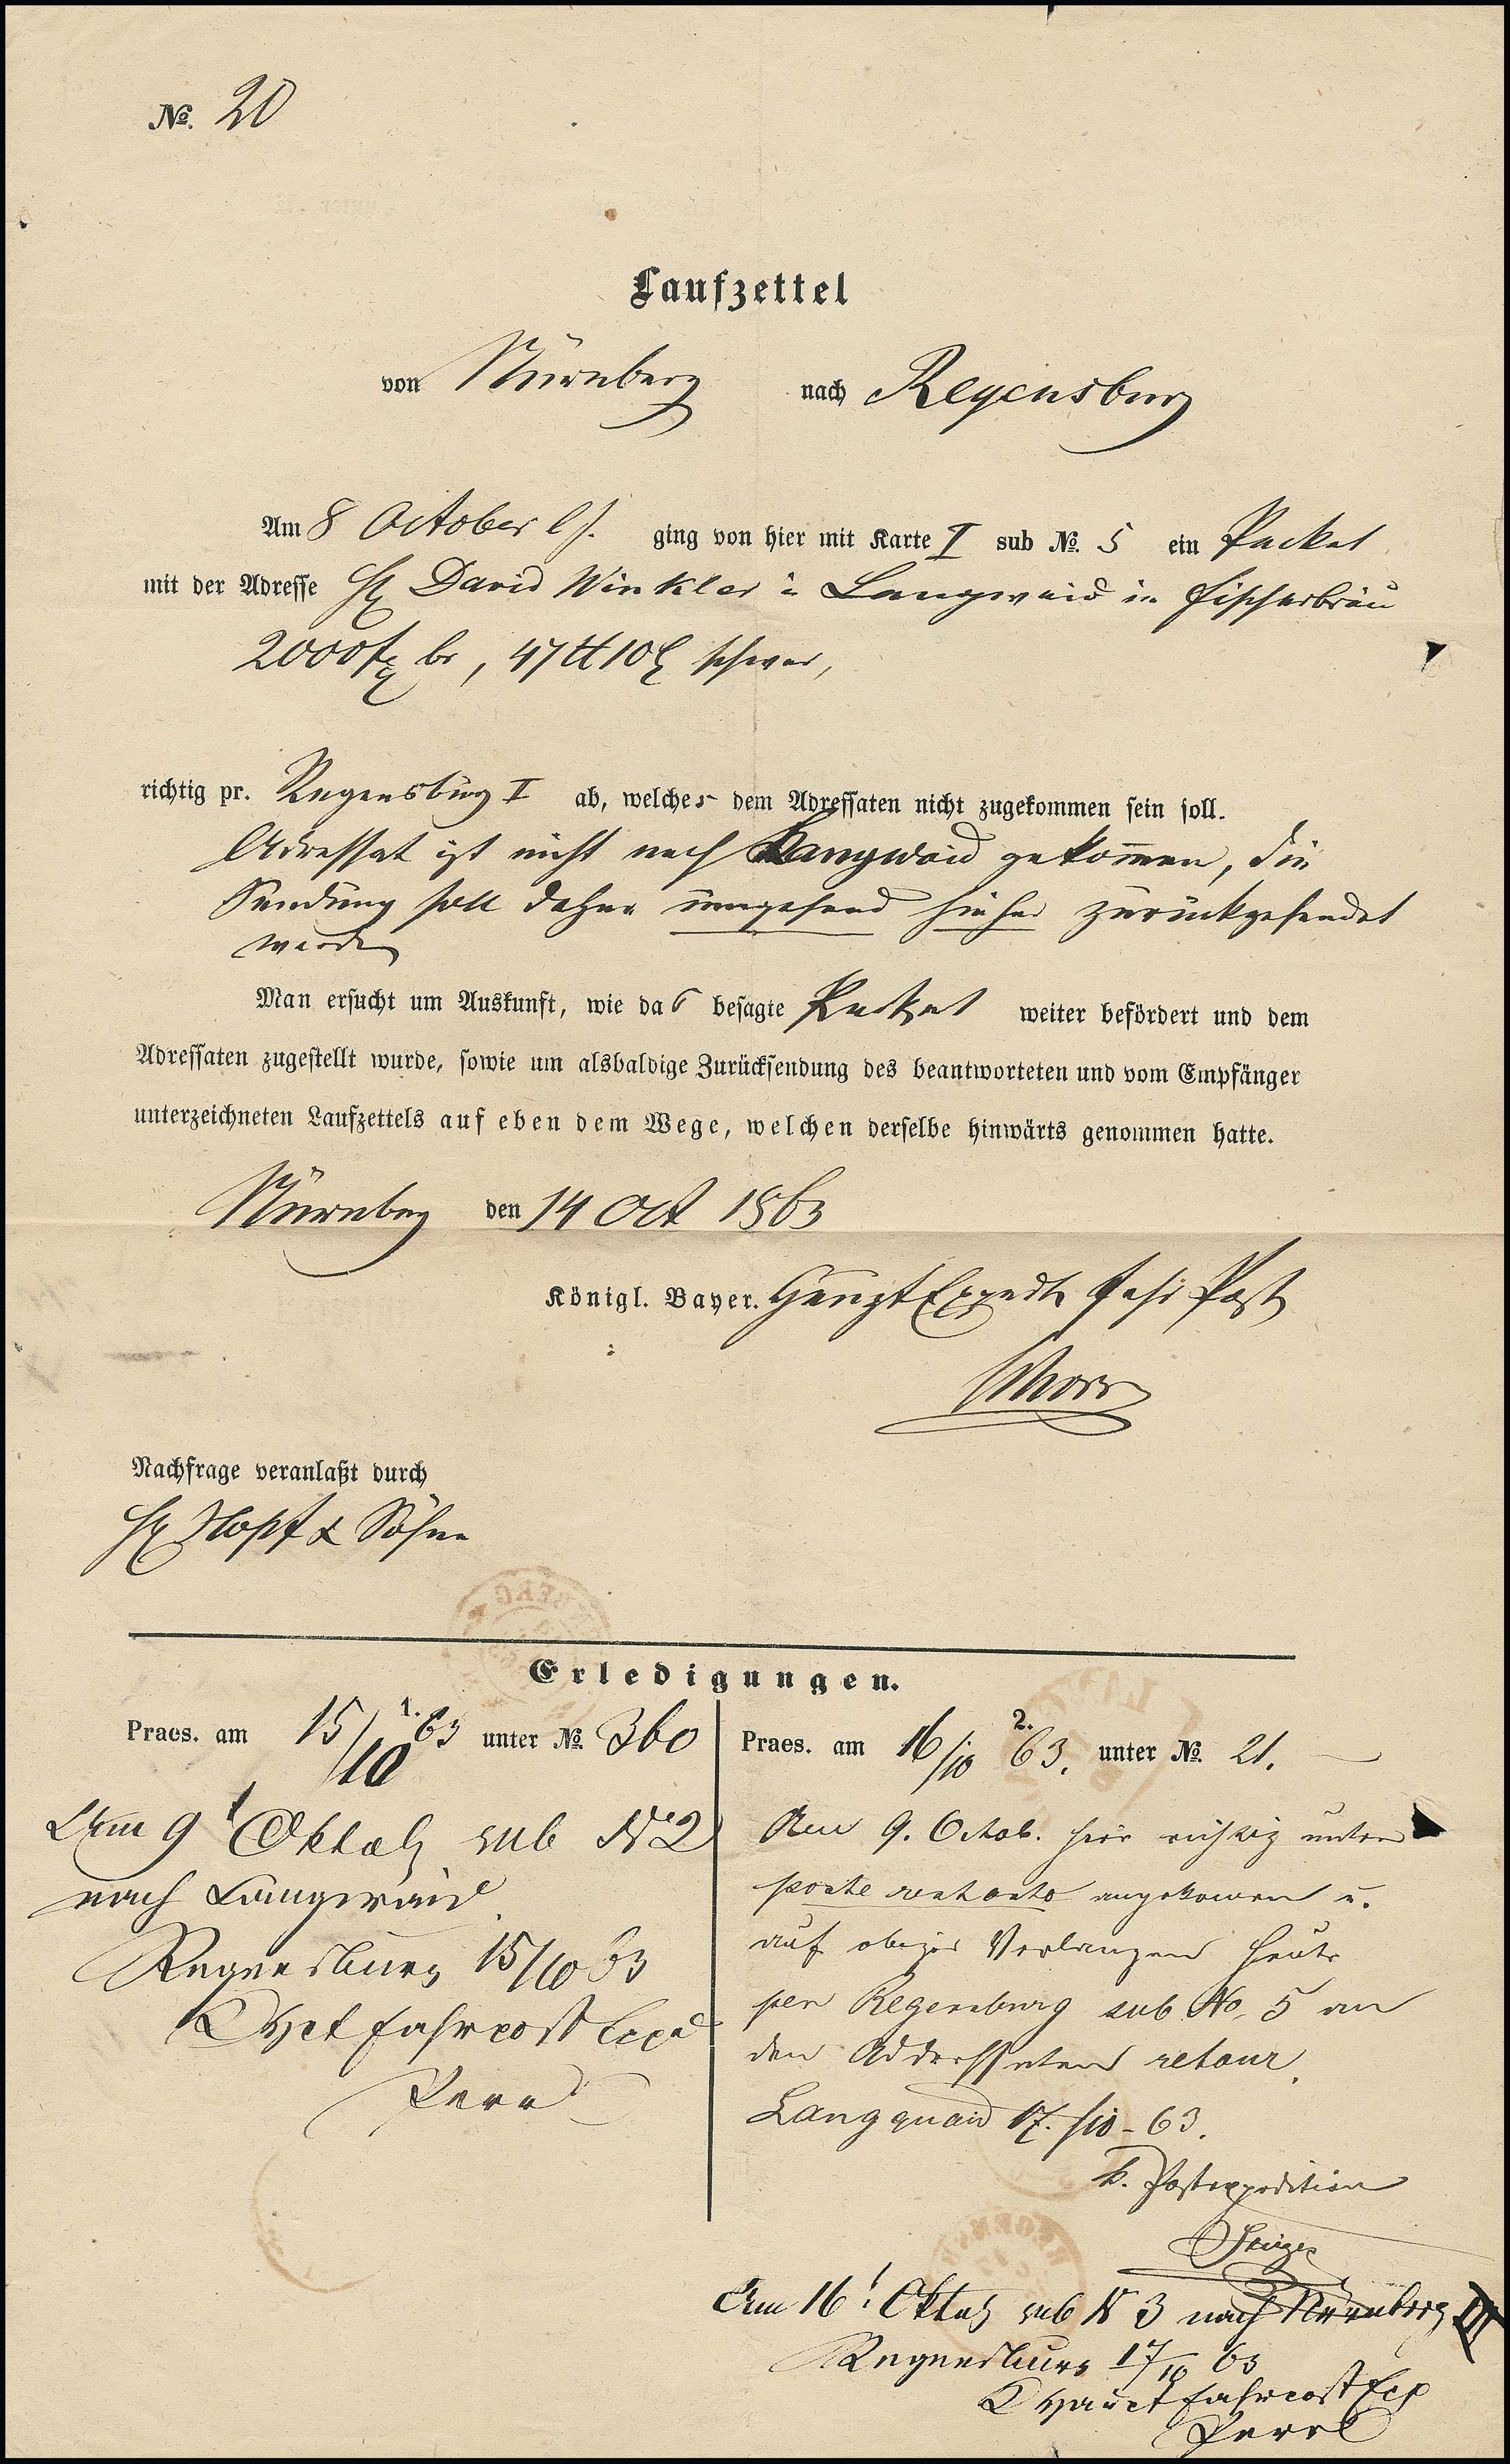 №. 20
Laufzettel
von Nürnberg nach Regensburg
Am 8 October l J. ging von hier mit Karte I sub №. 5 ein Packet
mit der Adresse H David Winkler in Langwaid in Fischerbräu
2000 f br, 47 ℔ 10 schwer,
richtig pr. Regensburg I ab, welches dem Adressaten nicht zugekommen sein soll.
Adressat ist nicht nach Langwaid gekommen, die
Sendung soll daher umgehend hieher zurückgesendet
werden
Man ersucht um Auskunft, wie das besagte Packet weiter befördert und dem
Adressaten zugestellt wurde, sowie um alsbaldige Zurücksendung des beantworteten und vom Empfänger
unterzeichneten Laufzettels auf eben dem Wege, welchen derselbe hinwärts genommen hatte.
Nürnberg den 14 Oct 1863
Königl. Bayer. Haupt Expedt Fahr Post
Nachfrage veranlaßt durch
H Hopf & Söhne
Erledigungen.
1.
Praes. am 15/10 63 unter №. 360
Am 9 Oktob sub № 2
nach Langwaid
Regensburg 15/10 63
Hpt Fahrpost Exp
2.
Praes. am 16/10 63. unter №. 21.
Am 9. Octob. hier richtig unter
poste restante angekommen u.
auf obiges Verlangen heute
per Regensburg sub No. 5 an
den Addressaten retour.
Langquaid 17./10 - 63.
k. Postexpedition
Am 16 Oktob sub № 3 nach Nürnberg III
Regensburg 17/10 63
Haupt Fahrpost Exp